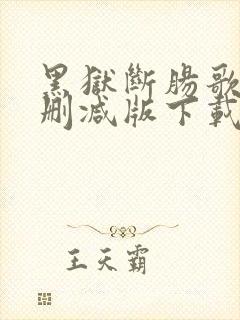 黑獄斷腸歌
刪減版下載
王天霸